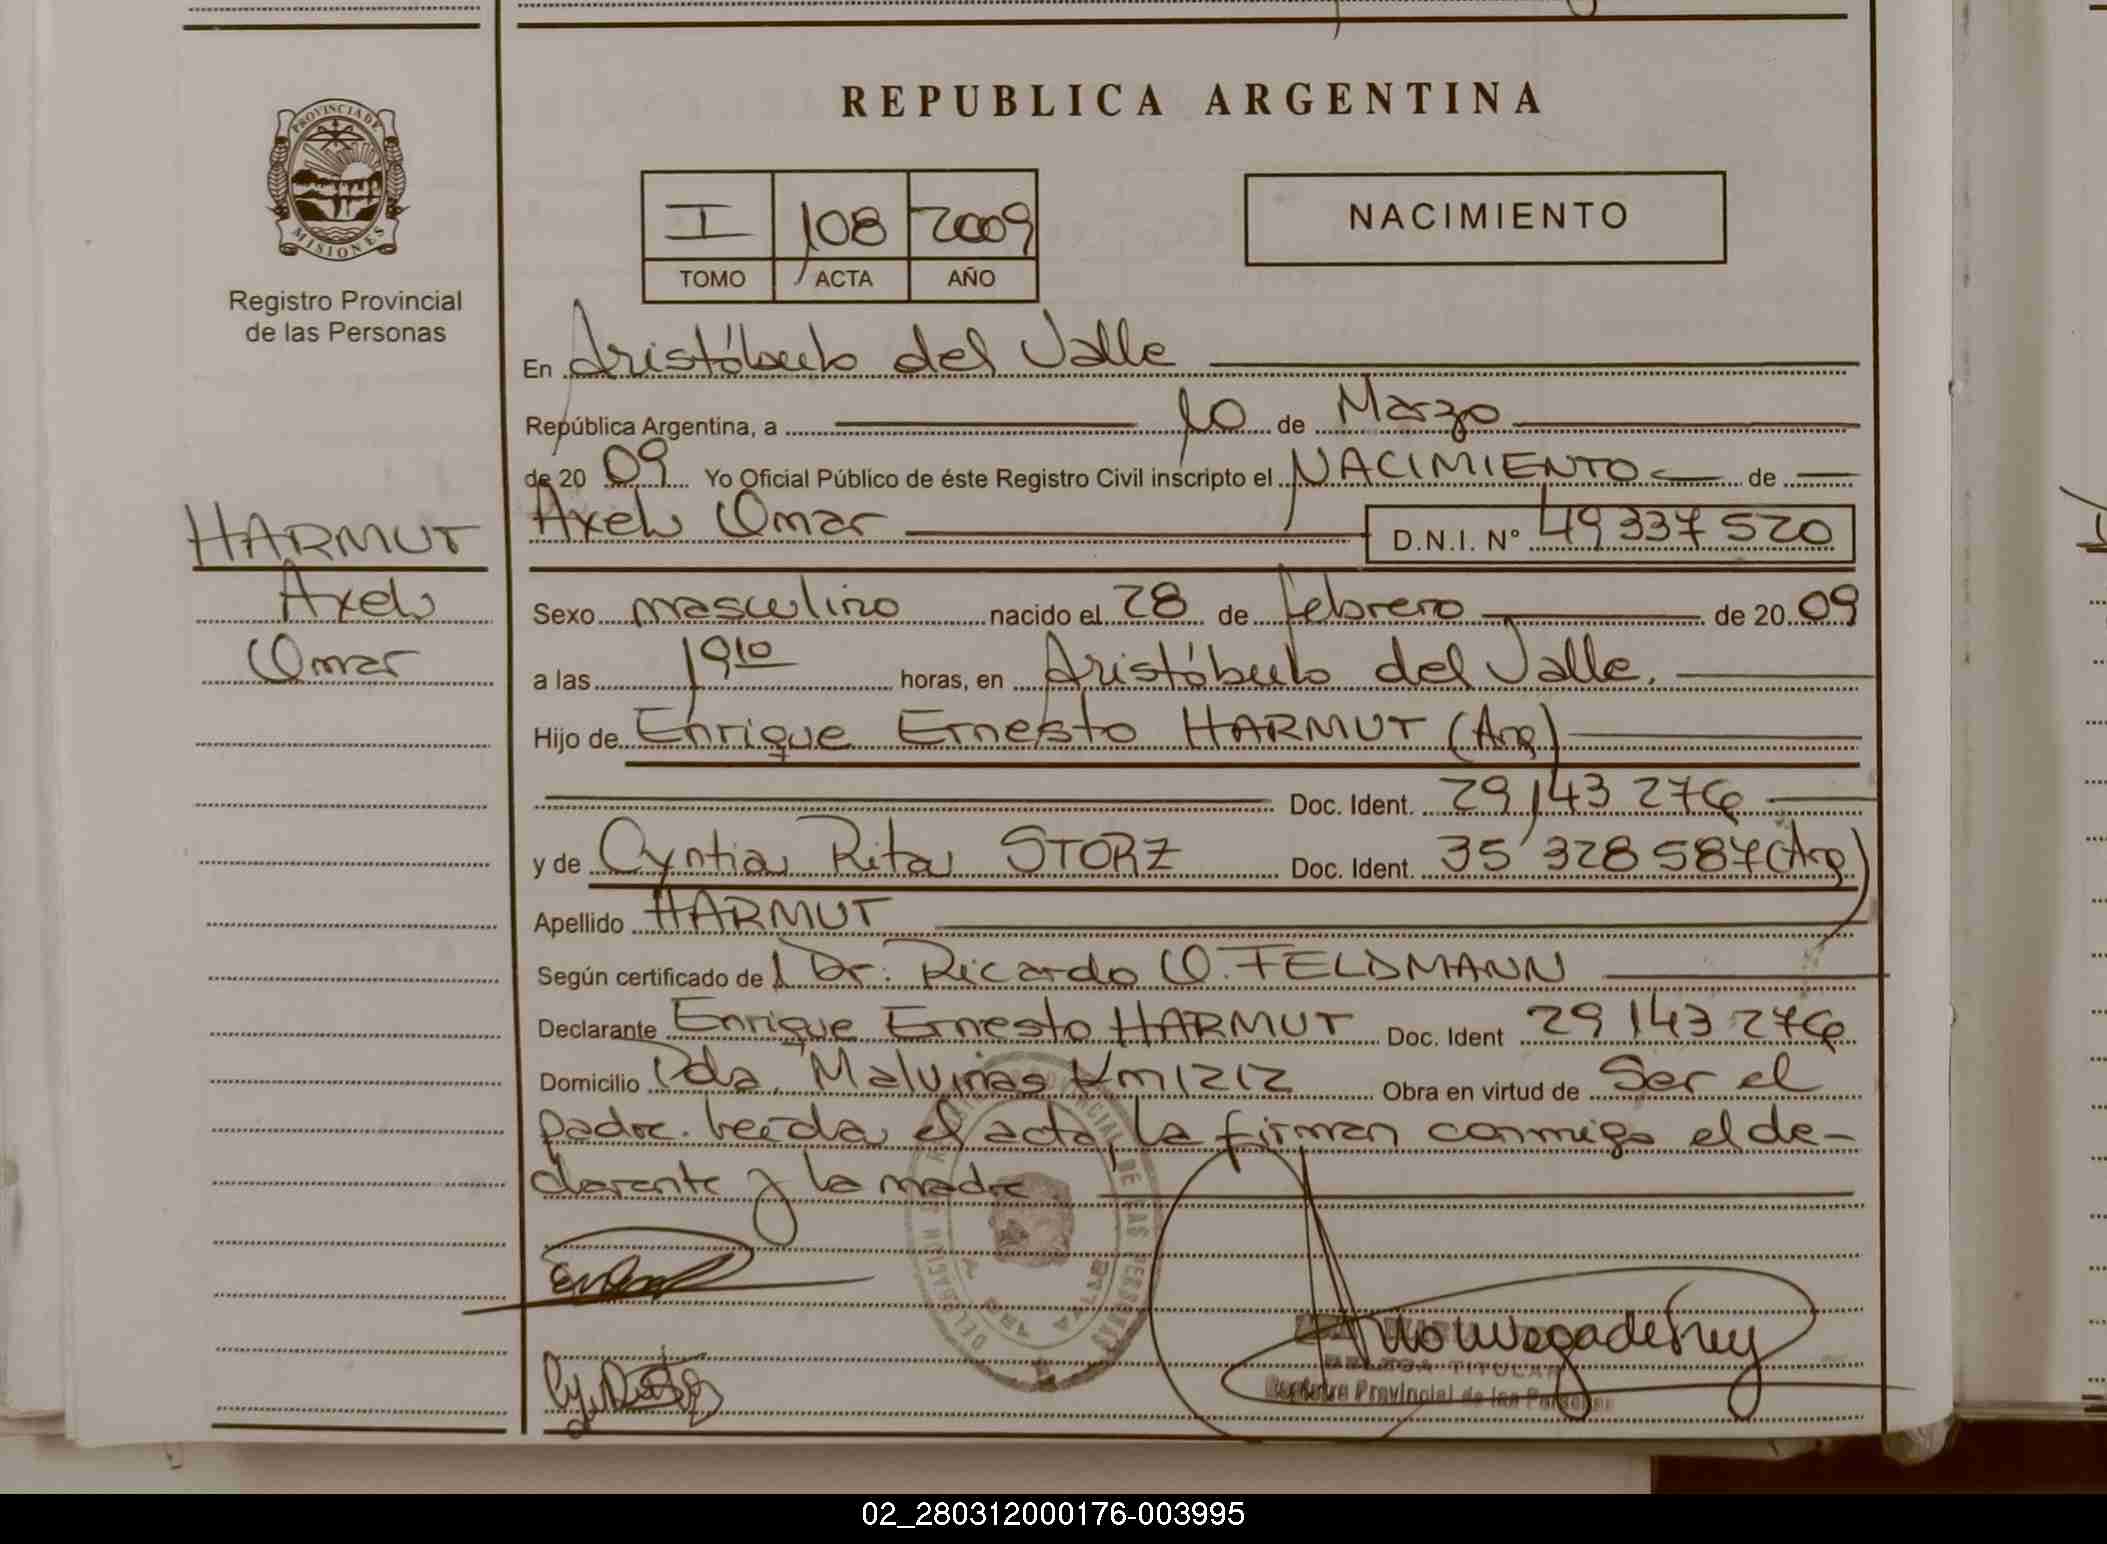 REPUBLICA ARGENTINA
PROVINCIA DE MISIONES
Registro Provincial
de las Personas
I 108 2009
TOMO ACTA AÑO
NACIMIENTO
En Aristóbulo del Valle
República Argentina, a 10 de Marzo
de 20 09 Yo Oficial Público de éste Registro Civil inscripto el NACIMIENTO de
Axel Omar D.N.I. N° 49 337 520
HARMUT
Axel
Omar
Sexo masculino nacido el 28 de febrero de 20 09
a las 19 10 horas, en Aristóbulo del Valle.
Hijo de Enrique Ernesto HARMUT (Arg)
Doc. Ident. 29 143 276
y de Cyntia Rita STORZ Doc. Ident. 35 328 587 (Arg)
Apellido HARMUT
Según certificado de l Dr. Ricardo O. FELDMANN
Declarante Enrique Ernesto HARMUT Doc. Ident 29 143 276
Domicilio Pda. Malvinas Km 1212 Obra en virtud de Ser el
padre. Leída el acta, la firman conmigo el de-
clarante y la madre
TITULAR
Registro Provincial de las Personas
02_280312000176-003995